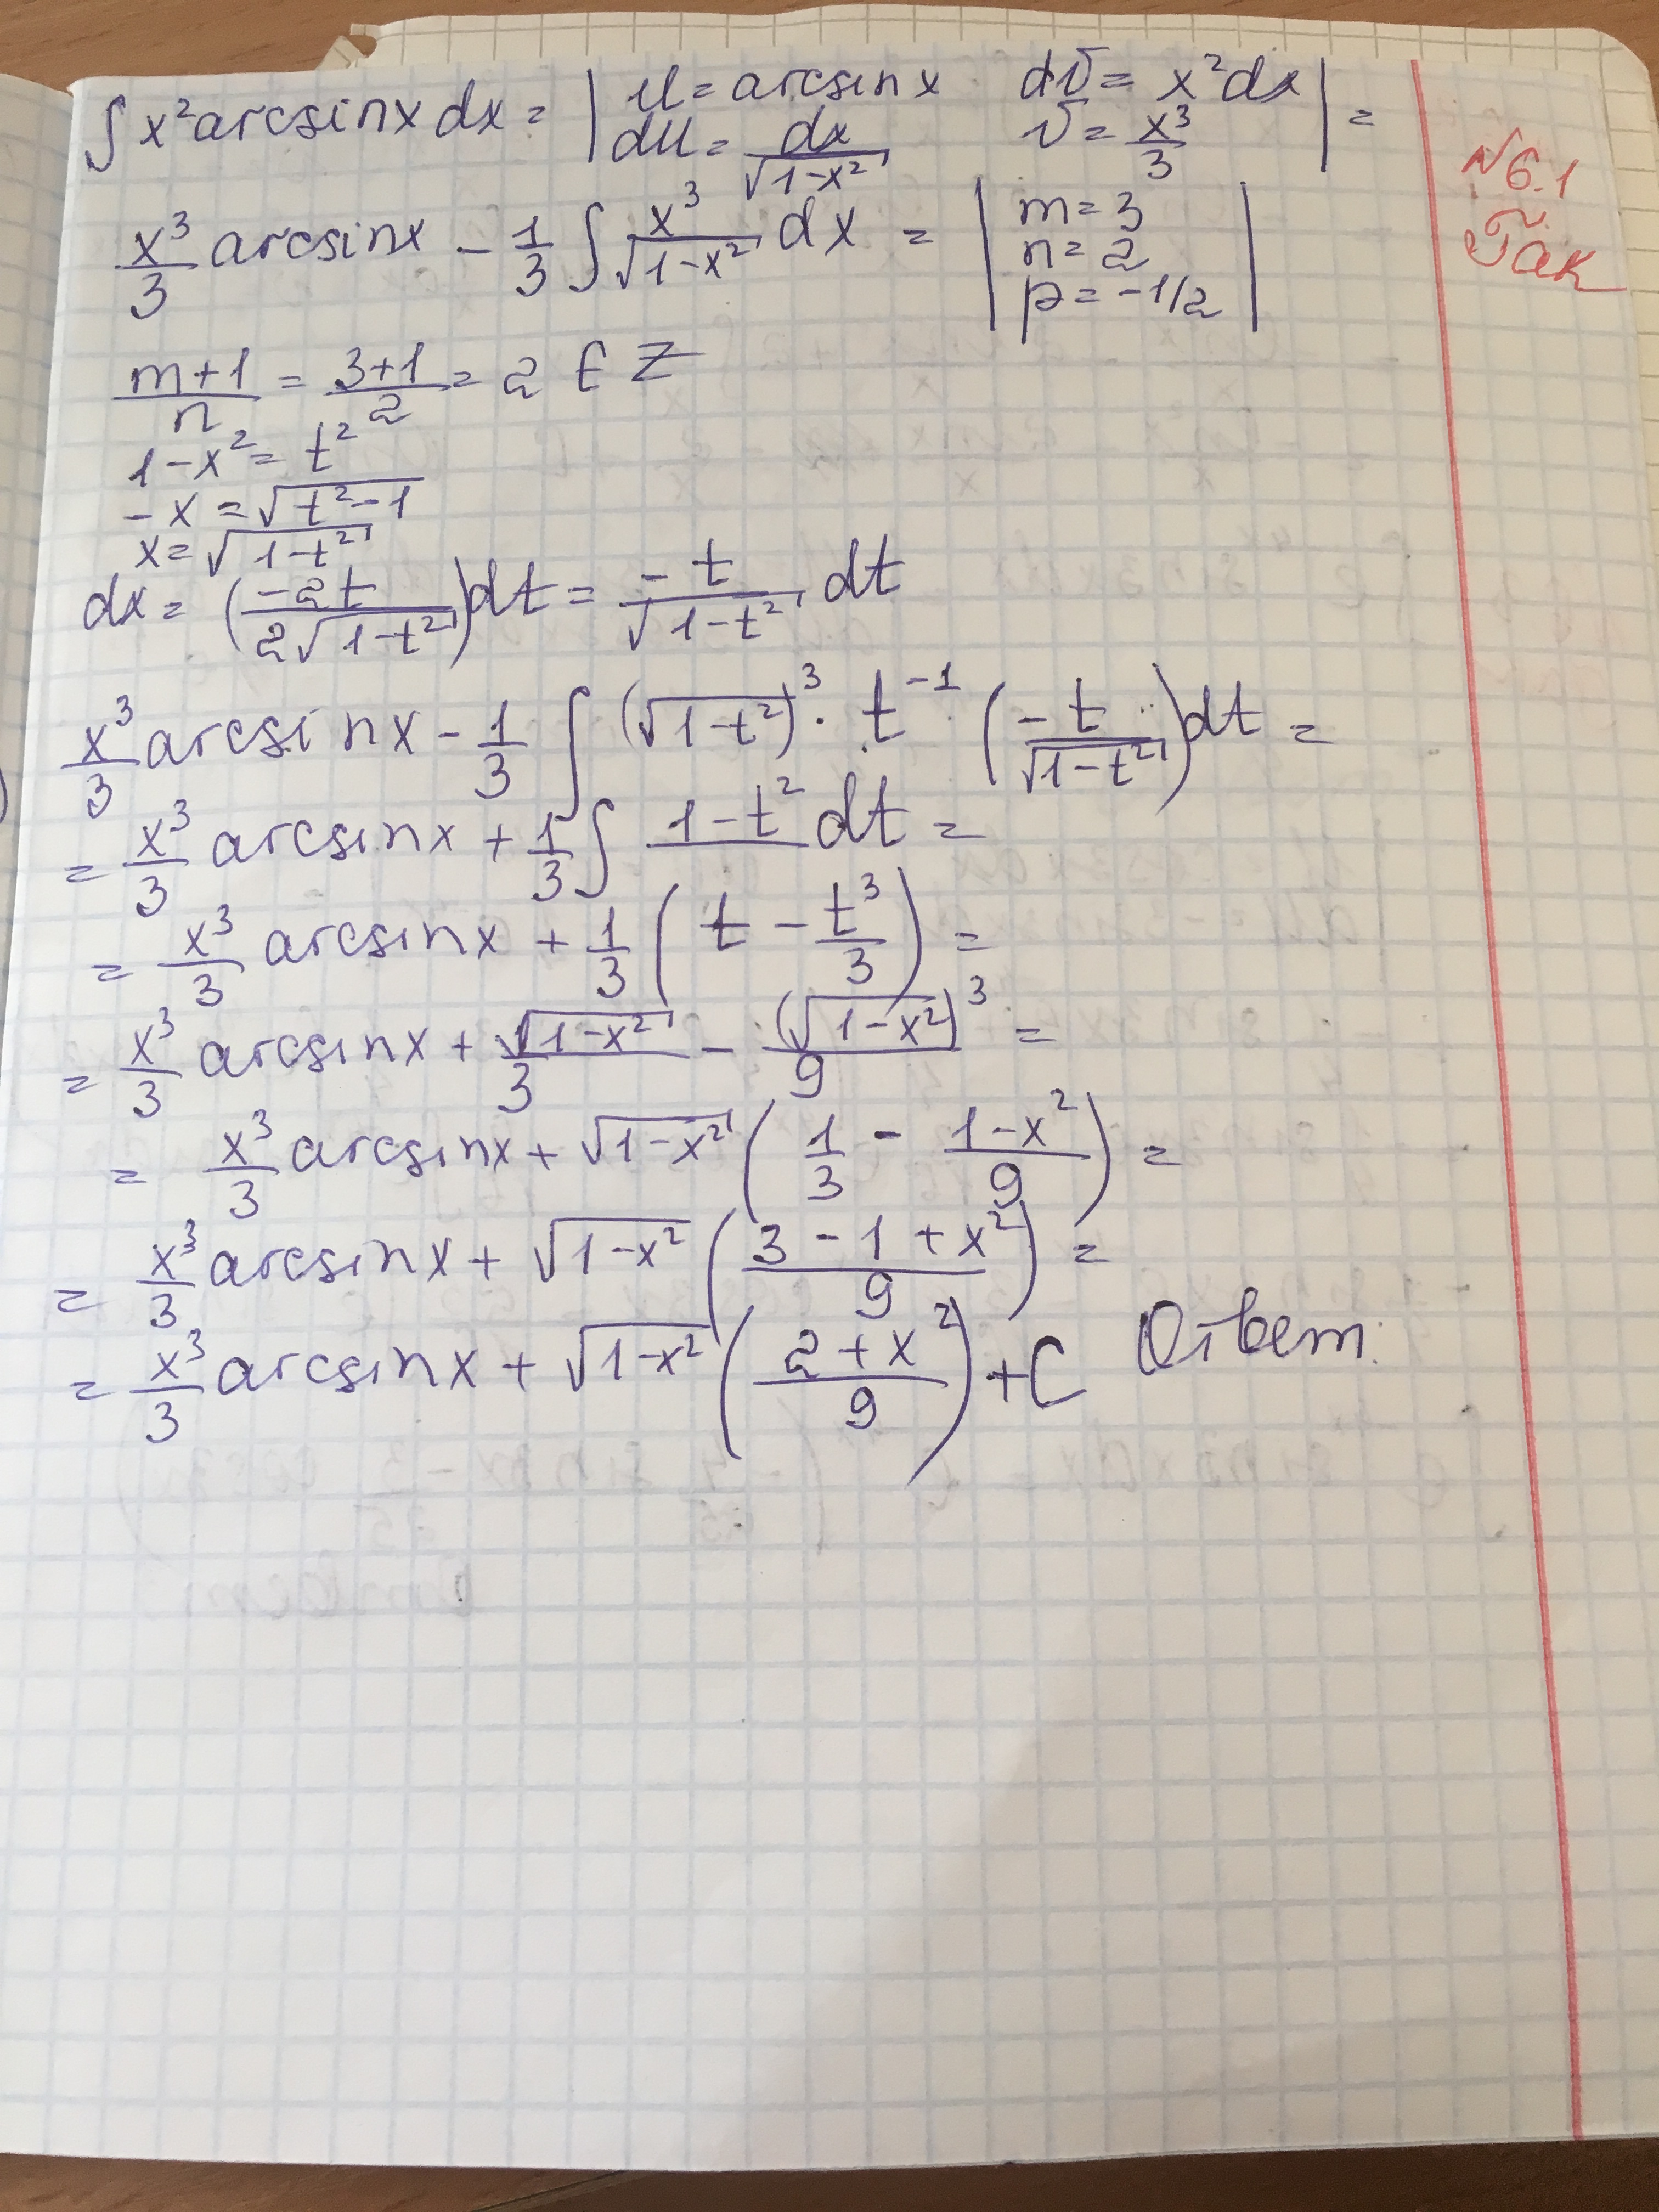 ∫ x² arcsinx dx = | u = arcsinx dv = x²dx | =
du = dx/√(1-x²) v = x³/3
x³/3 arcsinx - 1/3 ∫ x³/√(1-x²) dx = | m = 3
n = 2
p = -1/2 |
(m+1)/n = (3+1)/2 = 2 ∈ Z
1-x² = t²
-x = √(t²-1)
x = √(1-t²)
dx = (-2t/(2√(1-t²)))dt = -t/√(1-t²) dt
x³/3 arcsinx - 1/3 ∫ (√(1-t²))³ · t⁻¹ (-t/√(1-t²))dt =
= x³/3 arcsinx + 1/3 ∫ 1-t² dt =
= x³/3 arcsinx + 1/3 (t - t³/3) =
= x³/3 arcsinx + √(1-x²)/3 - (√(1-x²))³/9 =
= x³/3 arcsinx + √(1-x²) (1/3 - (1-x²)/9) =
= x³/3 arcsinx + √(1-x²) ((3-1+x²)/9) =
= x³/3 arcsinx + √(1-x²) ((2+x²)/9) + C Ответ.
№6.1
Так